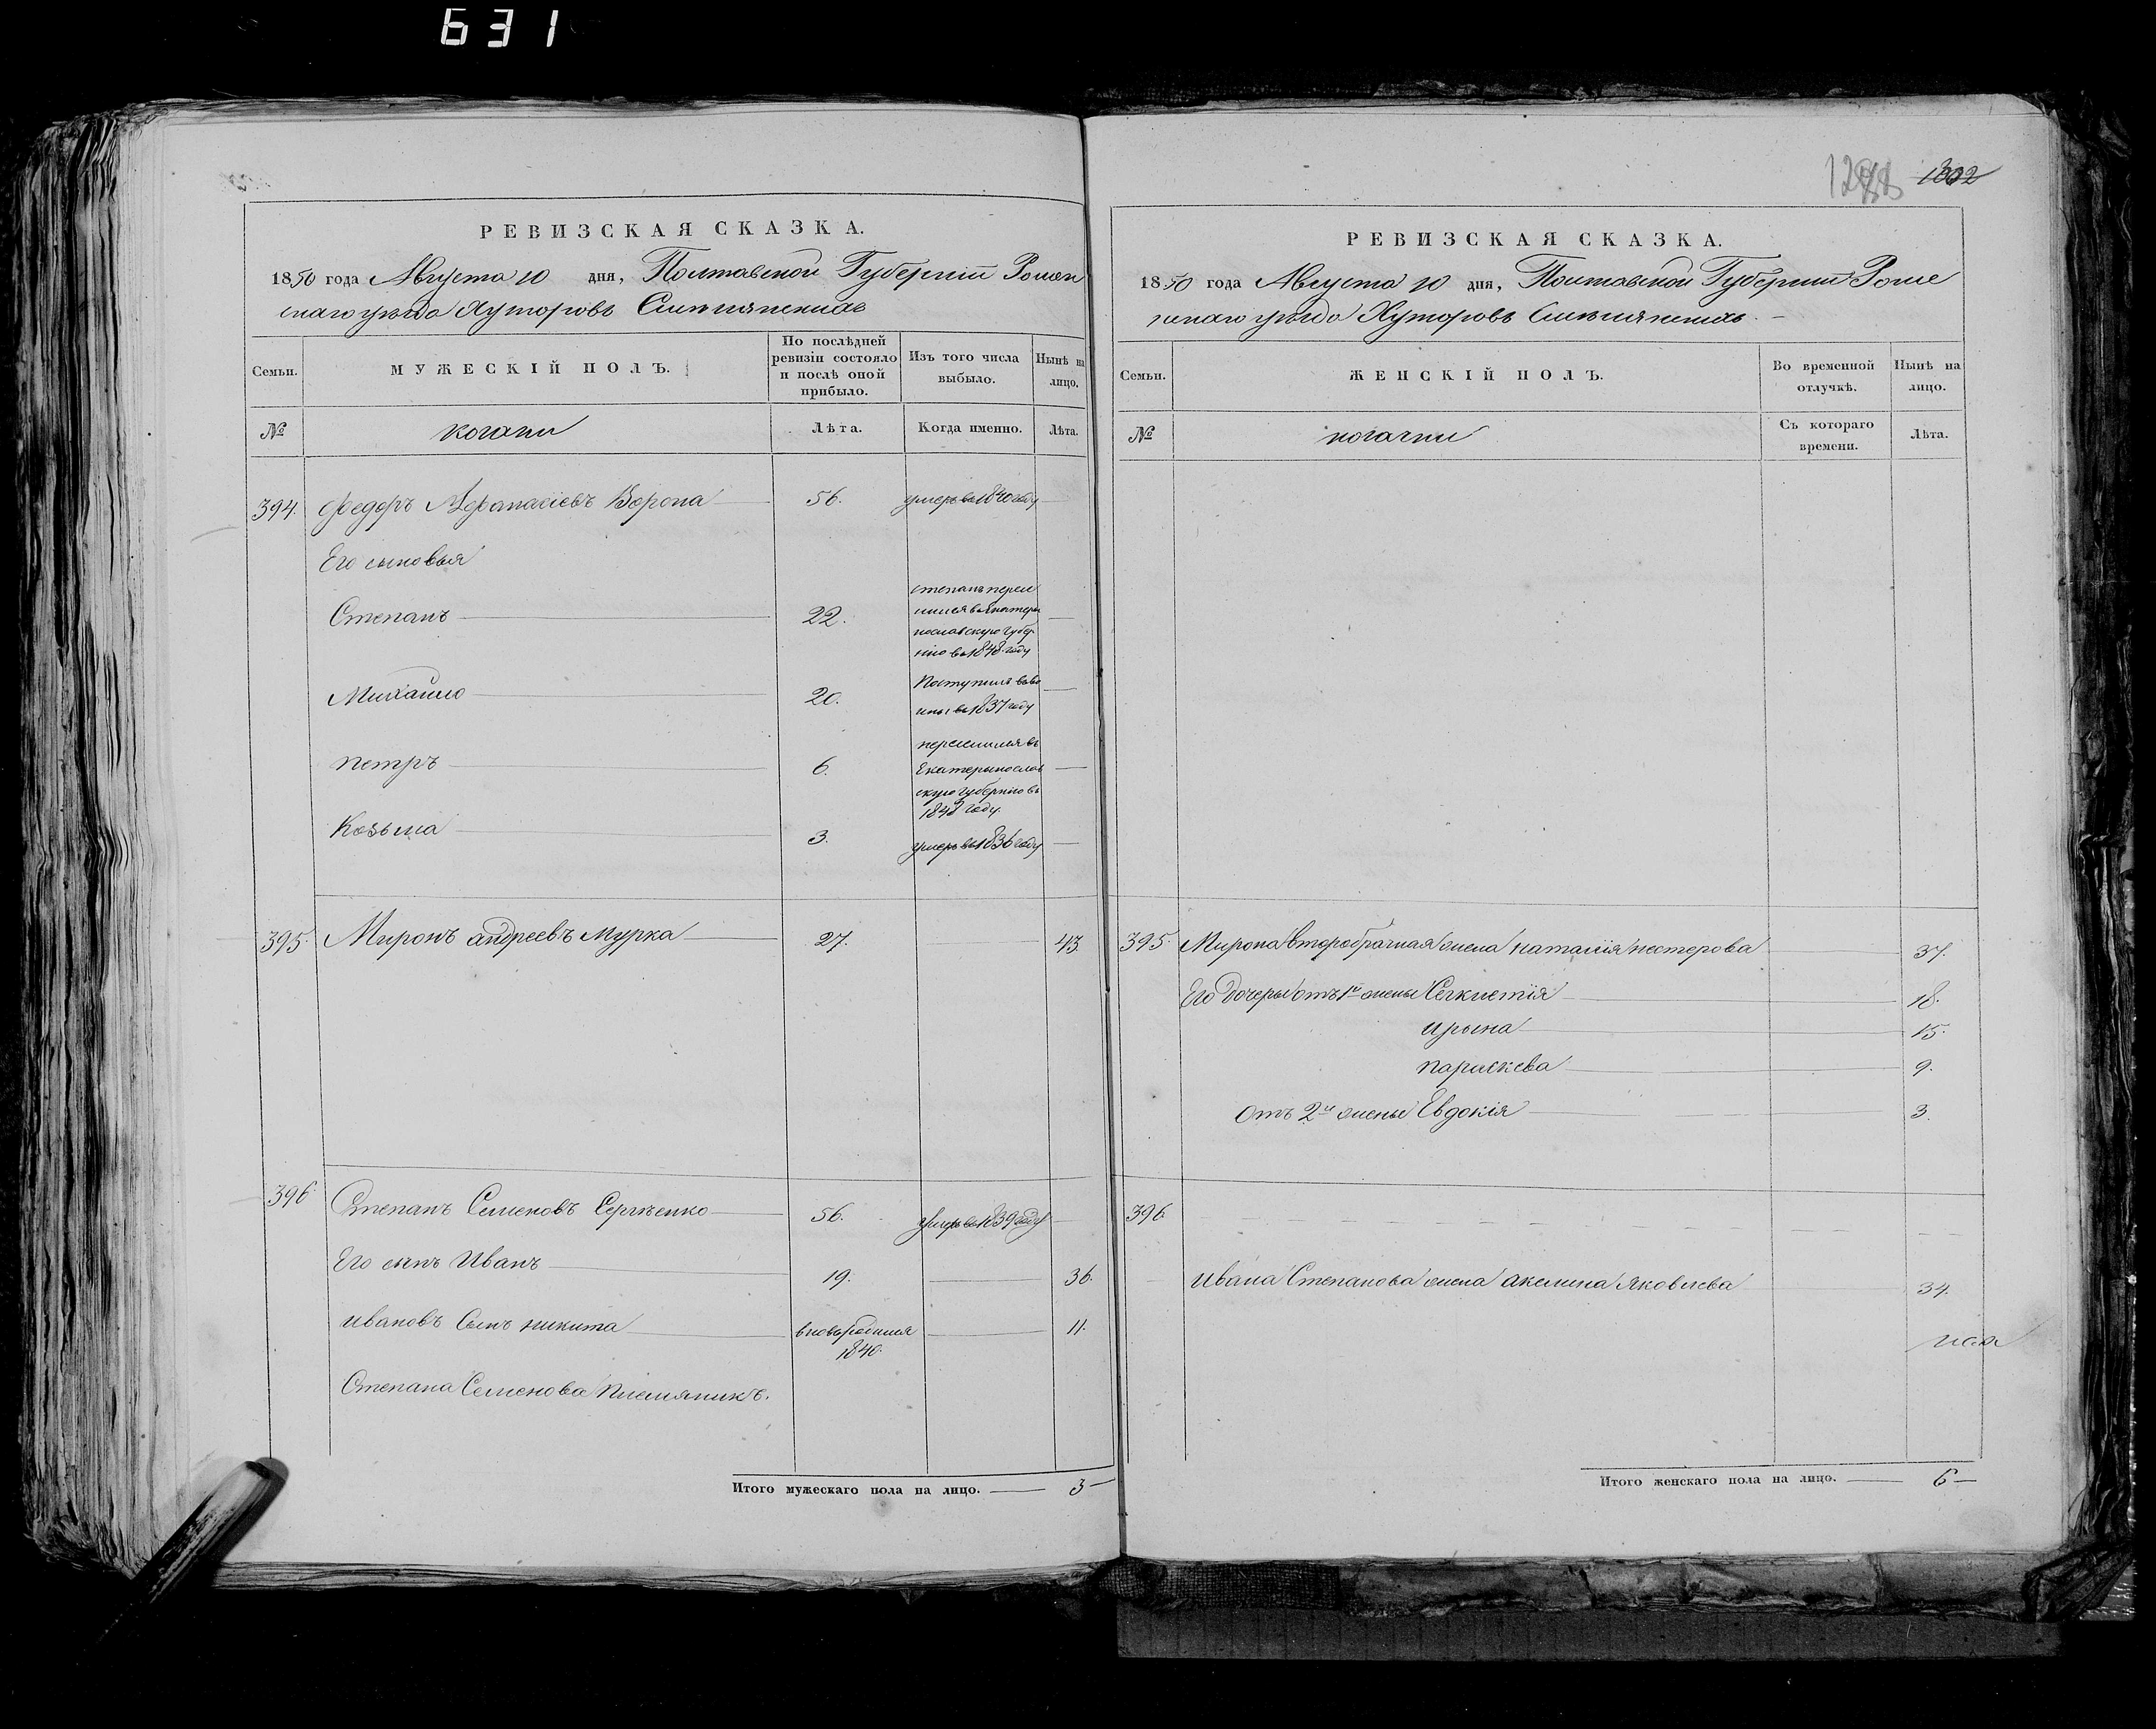 631
РЕВИЗСКАЯ СКАЗКА.
1850 года Августа 10 дня, Полтавской Губерніи Ромен
скаго уѣзда Хуторовъ
Семьи.
МУЖЕСКІЙ ПОЛЪ.
По послѣдней
ревизіи состояло
и послѣ оной
прибыло.
Изъ того числа
выбыло.
Нынѣ на
лицо.
№
козаки
Лѣта.
Когда именно.
Лѣта.
394. Федоръ Афанасіевъ Ворона 56. умеръ въ 1840 году
Его сыновья
Степанъ 22.
степанъ пересе
лился въ Екатери
нославскую губер
нію въ 1848 году
Михайло 20.
Поступилъ въ во
ины въ 1837 году
Петръ 6.
переселился въ
Екатеринослав
скую губернію въ
1848 году.
Козьма 3. умеръ въ 1836 году
395. Миронъ андреевъ Мурка 27. 43.
396 Степанъ Семеновъ Сергѣенко 56. умеръ въ 1839 году
Его сынъ Иванъ 19. 36.
ивановъ Сынъ никита вноворожденъ 11.
1840.
Степана Семенова племяникъ.
Итого мужескаго пола на лицо. 3
1302
РЕВИЗСКАЯ СКАЗКА.
1850 года Августа 10 дня, Полтавской Губерніи Роме
нскаго уѣзда Хуторовъ
Семьи.
ЖЕНСКІЙ ПОЛЪ.
Во временной
отлучкѣ.
Нынѣ на
лицо.
№
козачки
Съ котораго
времени.
Лѣта.
395. Мирона второбрачная жена наталія нестерова 37.
Его дочеры отъ 1й жены 18.
ирына 15.
параскева 9.
отъ 2й жены Евдокія 3.
396.
ивана Степанова жена акилина Яковлева 34.
Итого женскаго пола на лицо. 6